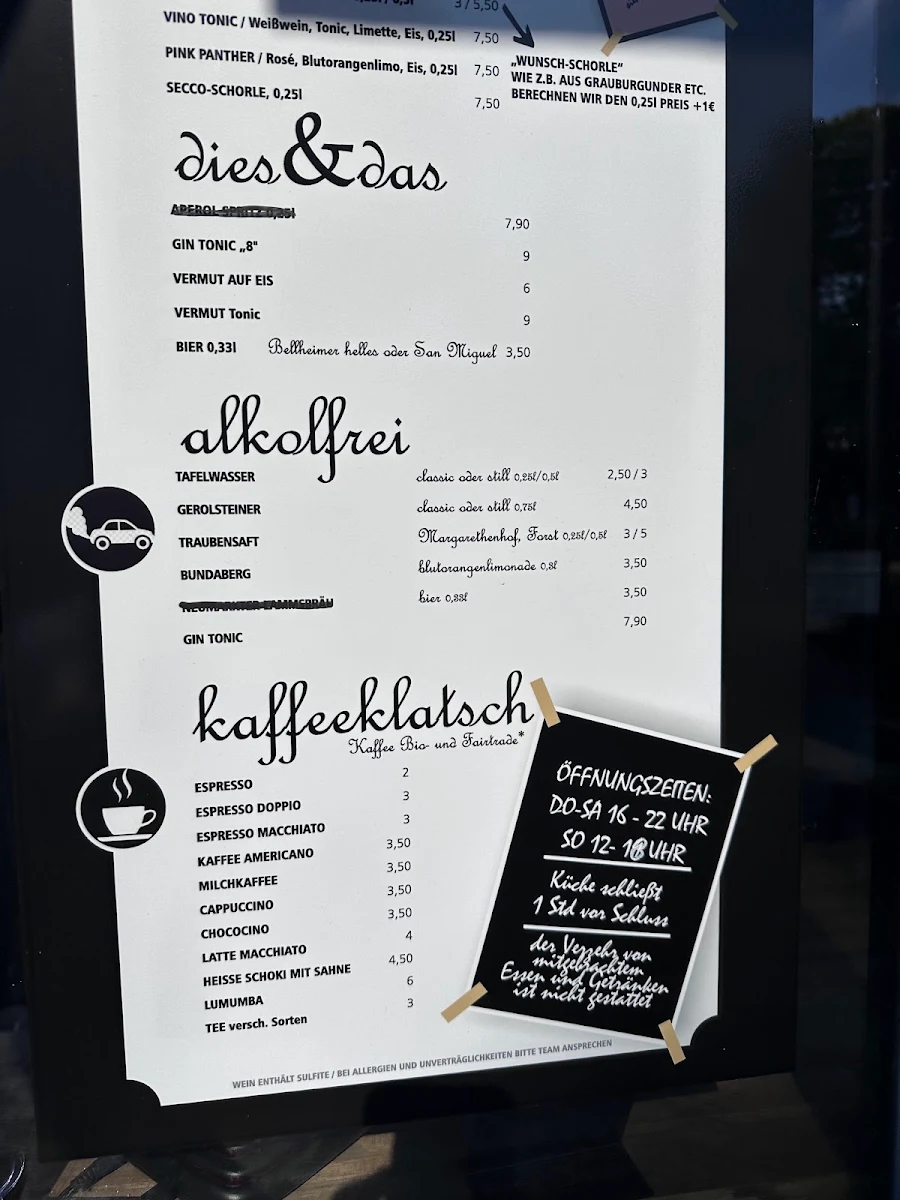 3 / 5,50
VINO TONIC / Weißwein, Tonic, Limette, Eis, 0,25l 7,50
PINK PANTHER / Rosé, Blutorangenlimo, Eis, 0,25l 7,50
SECCO-SCHORLE, 0,25l 7,50
„WUNSCH-SCHORLE“
WIE Z.B. AUS GRAUBURGUNDER ETC.
BERECHNEN WIR DEN 0,25l PREIS +1€
dies & das
APEROL-SPRITZ 0,25l 7,90
GIN TONIC „8“ 9
VERMUT AUF EIS 6
VERMUT Tonic 9
BIER 0,33l Bellheimer helles oder San Miguel 3,50
alkolfrei
TAFELWASSER classic oder still 0,25l/0,5l 2,50 / 3
GEROLSTEINER classic oder still 0,75l 4,50
TRAUBENSAFT Margarethenhof, Forst 0,25l/0,5l 3 / 5
BUNDABERG blutorangenlimonade 0,3l 3,50
NEUMARKTER LAMMSBRÄU bier 0,33l 3,50
GIN TONIC 7,90
kaffeeklatsch
Kaffee Bio- und Fairtrade*
ESPRESSO 2
ESPRESSO DOPPIO 3
ESPRESSO MACCHIATO 3
KAFFEE AMERICANO 3,50
MILCHKAFFEE 3,50
CAPPUCCINO 3,50
CHOCOCINO 3,50
LATTE MACCHIATO 4
HEISSE SCHOKI MIT SAHNE 4,50
LUMUMBA 6
TEE versch. Sorten 3
ÖFFNUNGSZEITEN:
DO-SA 16 - 22 UHR
SO 12- 18 UHR
Küche schließt
1 Std vor Schluss
der Verzehr von
mitgebrachtem
Essen und Getränken
ist nicht gestattet
WEIN ENTHÄLT SULFITE / BEI ALLERGIEN UND UNVERTRÄGLICHKEITEN BITTE TEAM ANSPRECHEN